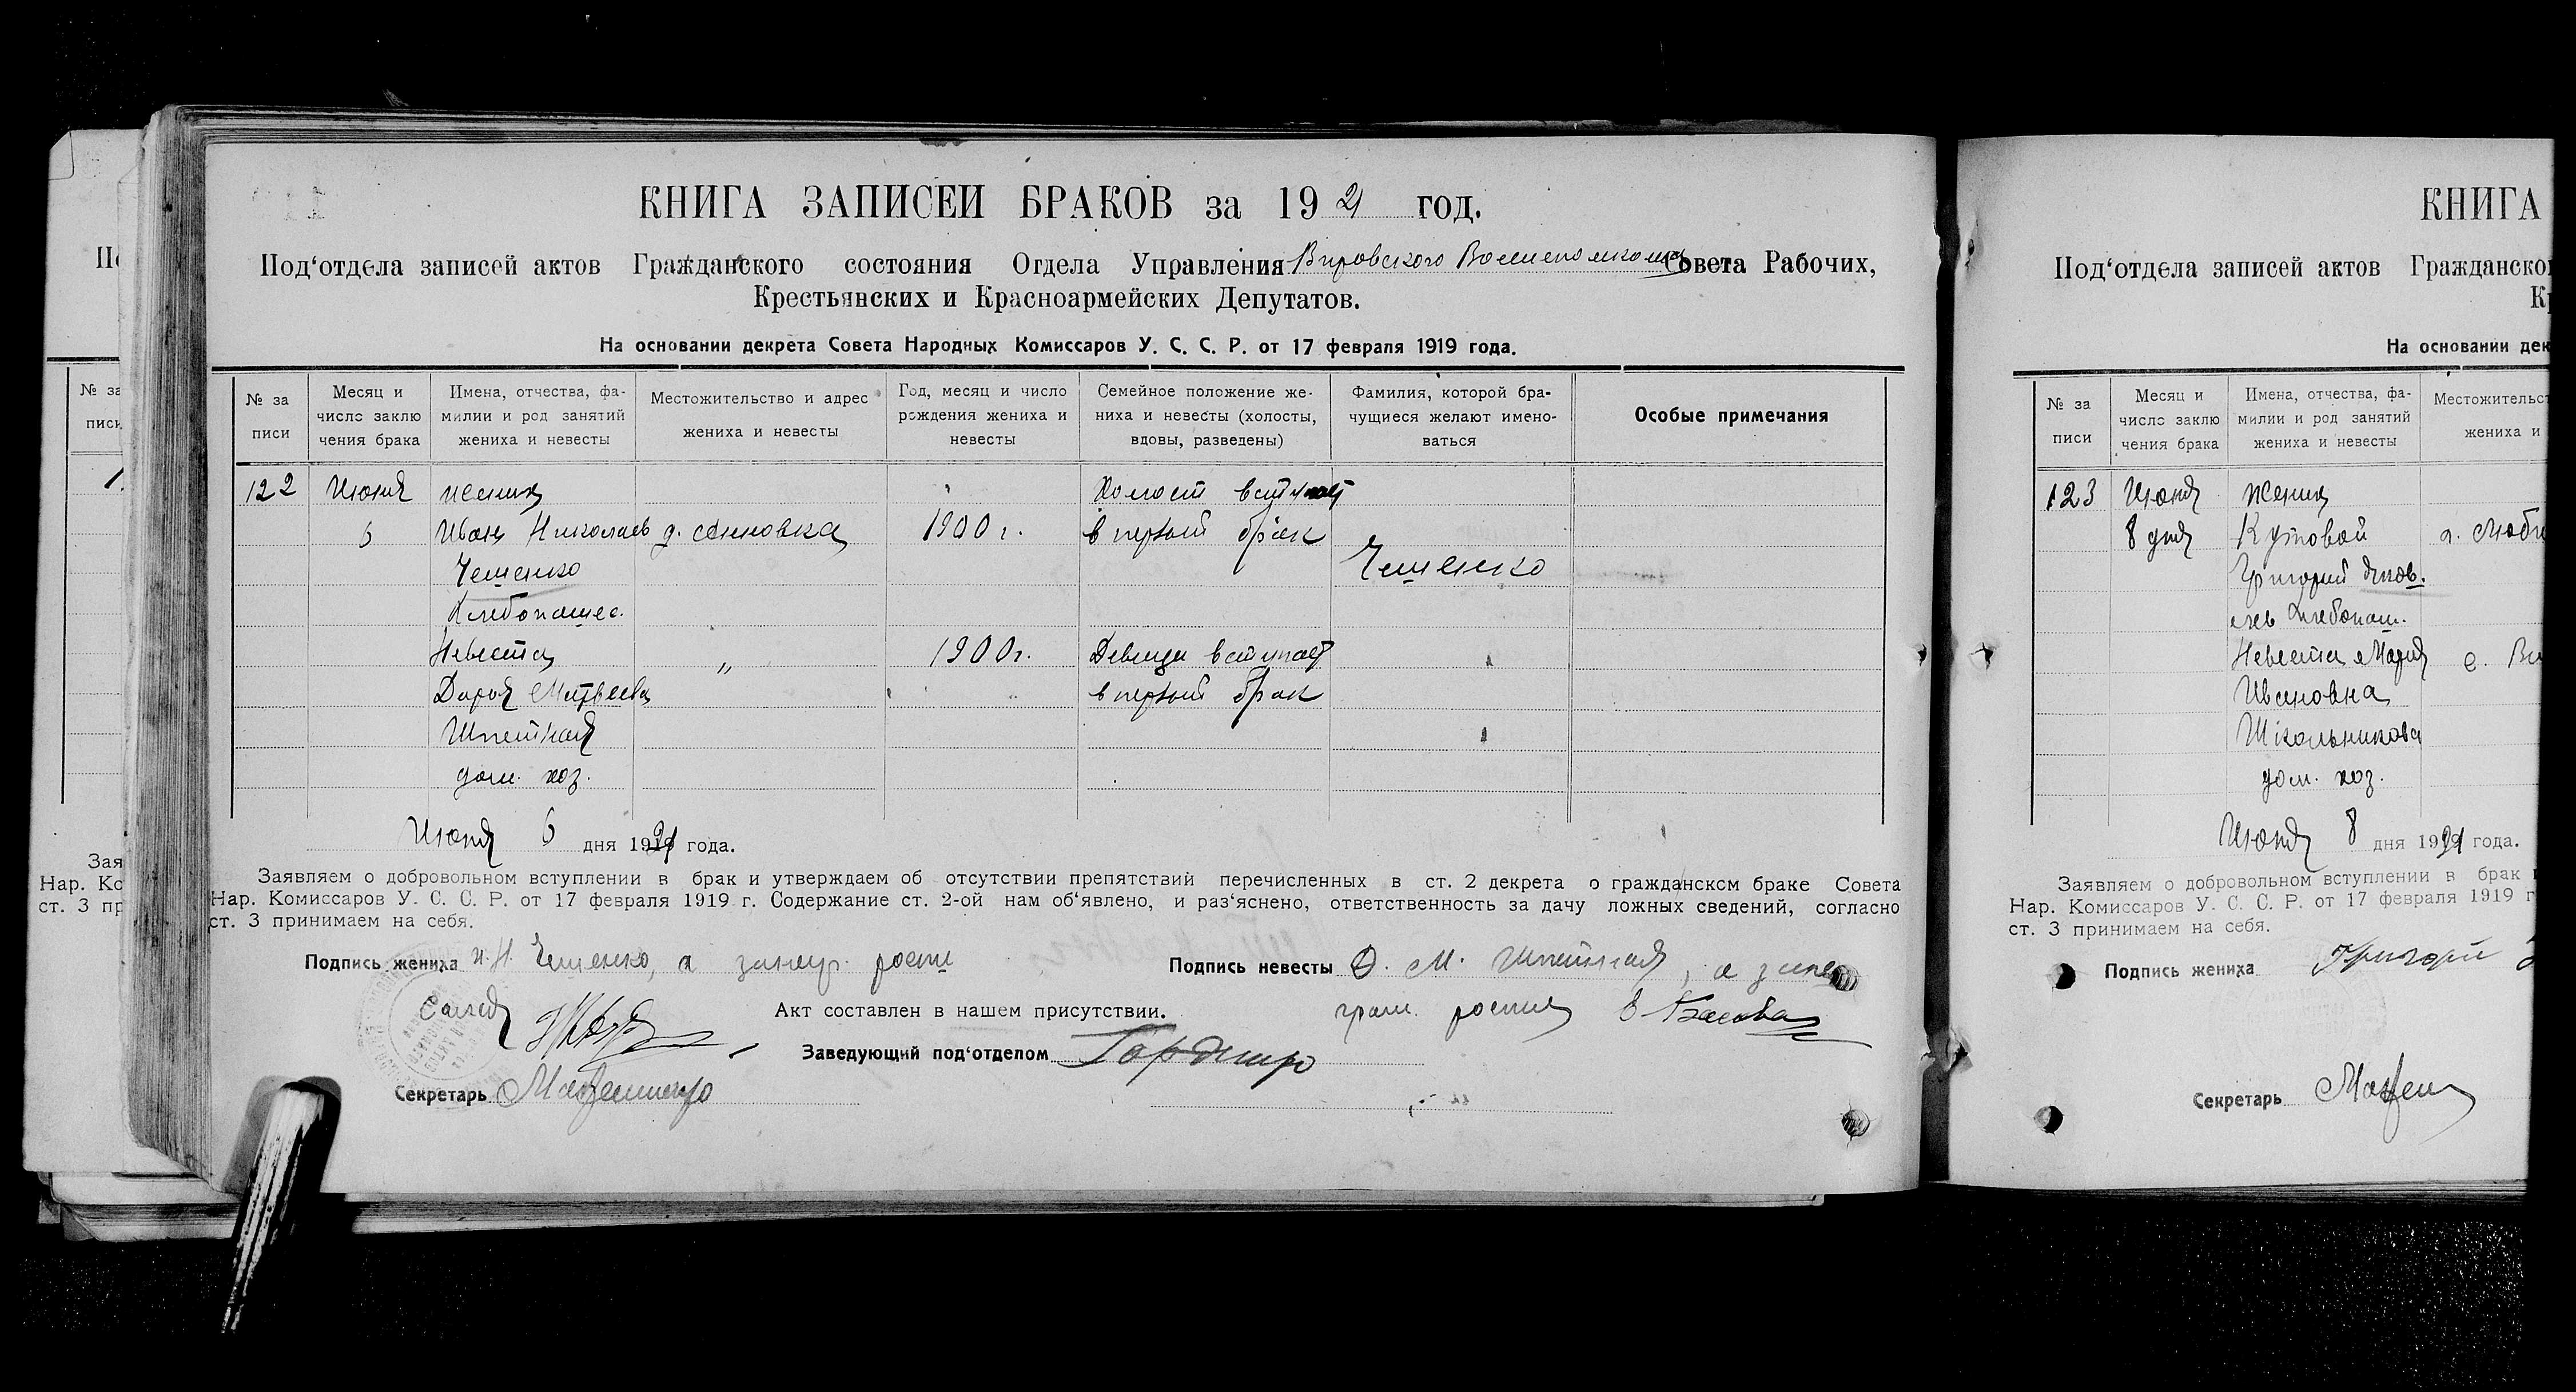 КНИГА ЗАПИСЕЙ БРАКОВ за 1921 год.
Под‘отдела записей актов Гражданского состояния Отдела Управления Вировского Волисполкома Совета Рабочих,
Крестьянских и Красноармейских Депутатов.
На основании декрета Совета Народных Комиссаров У. С. С. Р. от 17 февраля 1919 года.
№ за писи
Месяц и число заклю чения брака
Имена, отчества, фа- милии и род занятий жениха и невесты
Местожительство и адрес жениха и невесты
Год, месяц и число рождения жениха и невесты
Семейное положение же- ниха и невесты (холосты, вдовы, разведены)
Фамилия, которой бра- чущиеся желают имено- ваться
Особые примечания
122 Июня жених Холост вступает
6 Иван Николаев д. 1900 г. в первый брак
Чешенко Чешенко
Хлебопашес.
Невеста „ 1900г. Девица вступает
Дарья Матвеева в первый брак
Шпетная
дом. хоз.
Июня 6 дня 1921 года.
Заявляем о добровольном вступлении в брак и утверждаем об отсутствии препятствий перечисленных в ст. 2 декрета о гражданском браке Совета
Нар. Комиссаров У. С. С. Р. от 17 февраля 1919 г. Содержание ст. 2-ой нам об‘явлено, и раз‘яснено, ответственность за дачу ложных сведений, согласно
ст. 3 принимаем на себя.
Подпись жениха И. Н. Чешенко, а
Подпись невесты Д. М. Шпетная, а за не
Акт составлен в нашем присутствии.
грам.
Заведующий под‘отделом
Секретарь
КНИГА
Под‘отдела записей актов Гражданско
К
На основании дек
№ за писи
Месяц и число заклю чения брака
Имена, отчества, фа- милии и род занятий жениха и невесты
Местожительст жениха и
123 Июня Жених
8 дня Кутовой
Григорий
Хлебопаш.
Невеста Мария с. Ви
Ивановна
Школьникова
дом. хоз.
Июня 8 дня 1921 года.
Заявляем о добровольном вступлении в брак
Нар. Комиссаров У. С. С. Р. от 17 февраля 1919 г
ст. 3 принимаем на себя.
Подпись жениха Григорий
Секретарь
№ за писи
Зая
Нар. Ко
ст. 3 пр